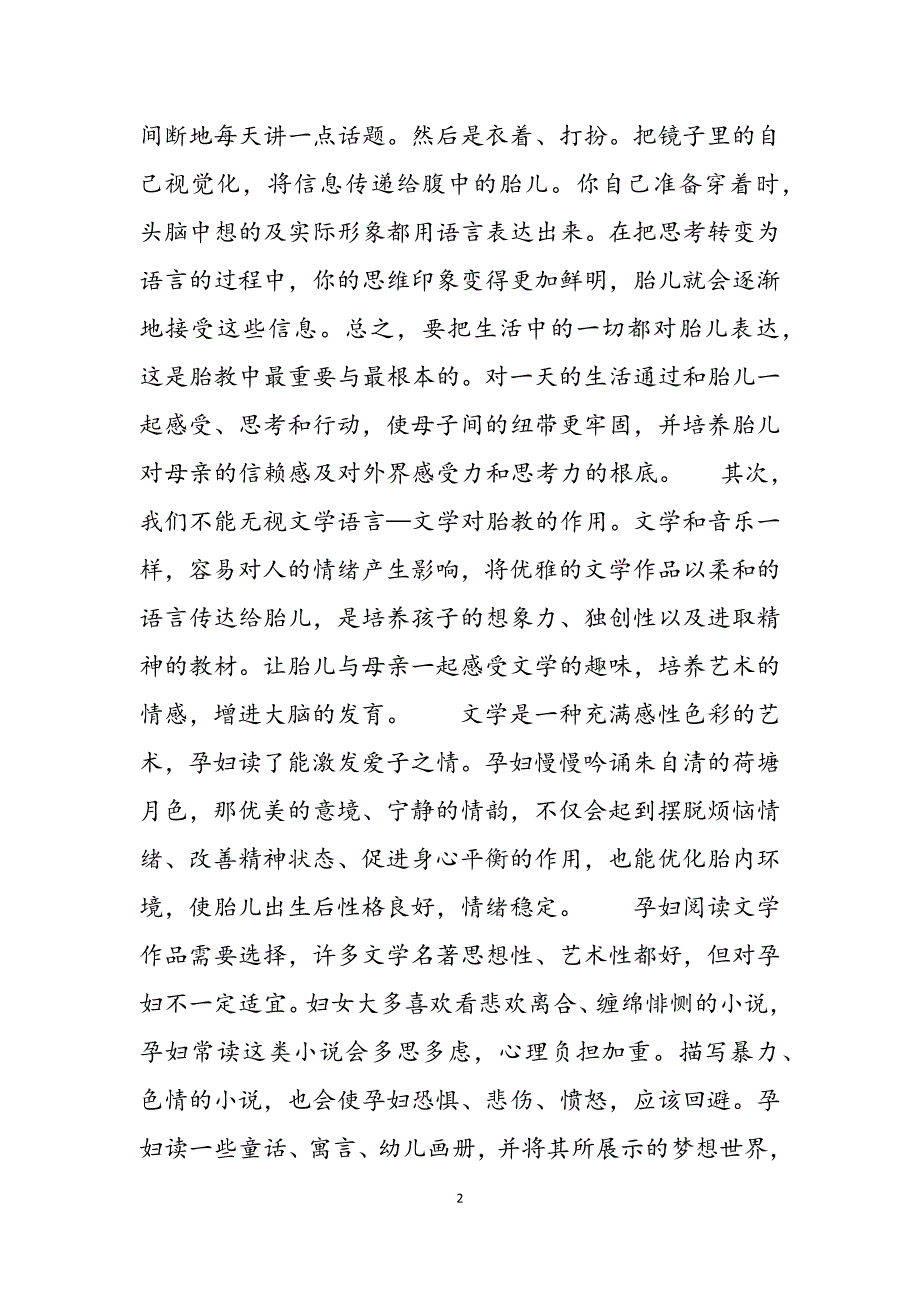 间断地每天讲一点话题。然后是衣着、打扮。把镜子里的自
己视觉化，将信息传递给腹中的胎儿。你自己准备穿着时，
头脑中想的及实际形象都用语言表达出来。在把思考转变为
语言的过程中，你的思维印象变得更加鲜明，胎儿就会逐渐
地接受这些信息。总之，要把生活中的一切都对胎儿表达，
这是胎教中最重要与最根本的。对一天的生活通过和胎儿一
起感受、思考和行动，使母子间的纽带更牢固，并培养胎儿
对母亲的信赖感及对外界感受力和思考力的根底。　　其次，
我们不能无视文学语言—文学对胎教的作用。文学和音乐一
样，容易对人的情绪产生影响，将优雅的文学作品以柔和的
语言传达给胎儿，是培养孩子的想象力、独创性以及进取精
神的教材。让胎儿与母亲一起感受文学的趣味，培养艺术的
情感，增进大脑的发育。　　文学是一种充满感性色彩的艺
术，孕妇读了能激发爱子之情。孕妇慢慢吟诵朱自清的荷塘
月色，那优美的意境、宁静的情韵，不仅会起到摆脱烦恼情
绪、改善精神状态、促进身心平衡的作用，也能优化胎内环
境，使胎儿出生后性格良好，情绪稳定。　　孕妇阅读文学
作品需要选择，许多文学名著思想性、艺术性都好，但对孕
妇不一定适宜。妇女大多喜欢看悲欢离合、缠绵悱恻的小说，
孕妇常读这类小说会多思多虑，心理负担加重。描写暴力、
色情的小说，也会使孕妇恐惧、悲伤、愤怒，应该回避。孕
妇读一些童话、寓言、幼儿画册，并将其所展示的梦想世界，
2